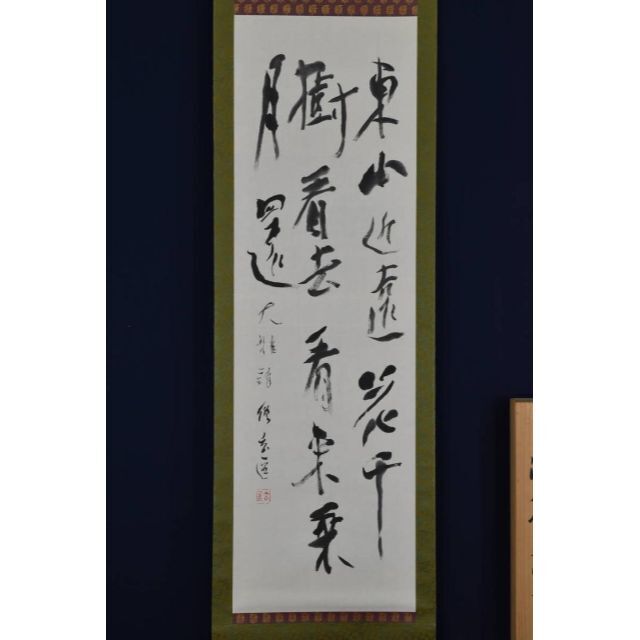 東山近遠花千
樹看去看来乗
月還
大雅詩